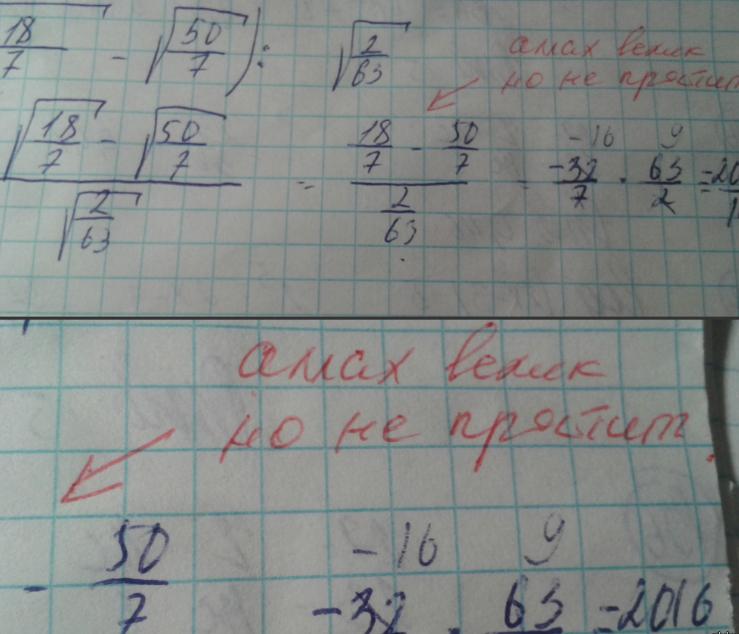 √18/7 - √50/7) : √2/63
амах велик
но не простит
√18/7 - √50/7 / √2/63 = 18/7 - 50/7 / 2/63 = -32/7 · 63/2 = -20
-16 9
амах велик
но не простит.
-16 9
- 50/7 -32 · 63 = -2016